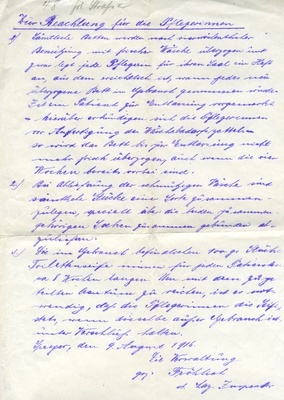 Zur Beachtung für die Pflegerinnen
1) Sämtliche Betten werden nach vierwöchentlicher
Benützung mit frischer Wäsche überzogen und
zwar legt jede Pflegerin für ihren Saal ein Heft
an, aus dem ersichtlich ist, wann jedes neu
überzogene Bett in Gebrauch genommen wurde
Ist ein Patient zur Entlassung vorgemerkt
– hierüber erkundigen sich die Pflegerinnen
vor Anfertigung des Wäschebedarfzettels –
so wird das Bett bis zur Entlassung nicht
mehr frisch überzogen, auch wenn die vier
Wochen bereits vorbei sind.
2.) Bei Ablieferung der schmutzigen Wäsche sind
sämtliche Stücke einer Sorte zusammen
zulegen, speziell aber die beiden zusammen
gehörigen Socken zusammen gebunden ab
zuliefern.
3.) Die im Gebrauch befindlichen 100 gr. Stück
Toiletteseife müssen für jeden Patienten
Wochen langen. Um mit dem zuge
teilten Quantum zu reichen, ist es not
wendig, daß die Pflegerinnen die Seife
stets, wenn dieselbe außer Gebrauch ist
unter Verschluß halten.
Speyer, den 9. August 1916.
Die Verwaltung
gez. Fröhlich
Laz. Inspektor